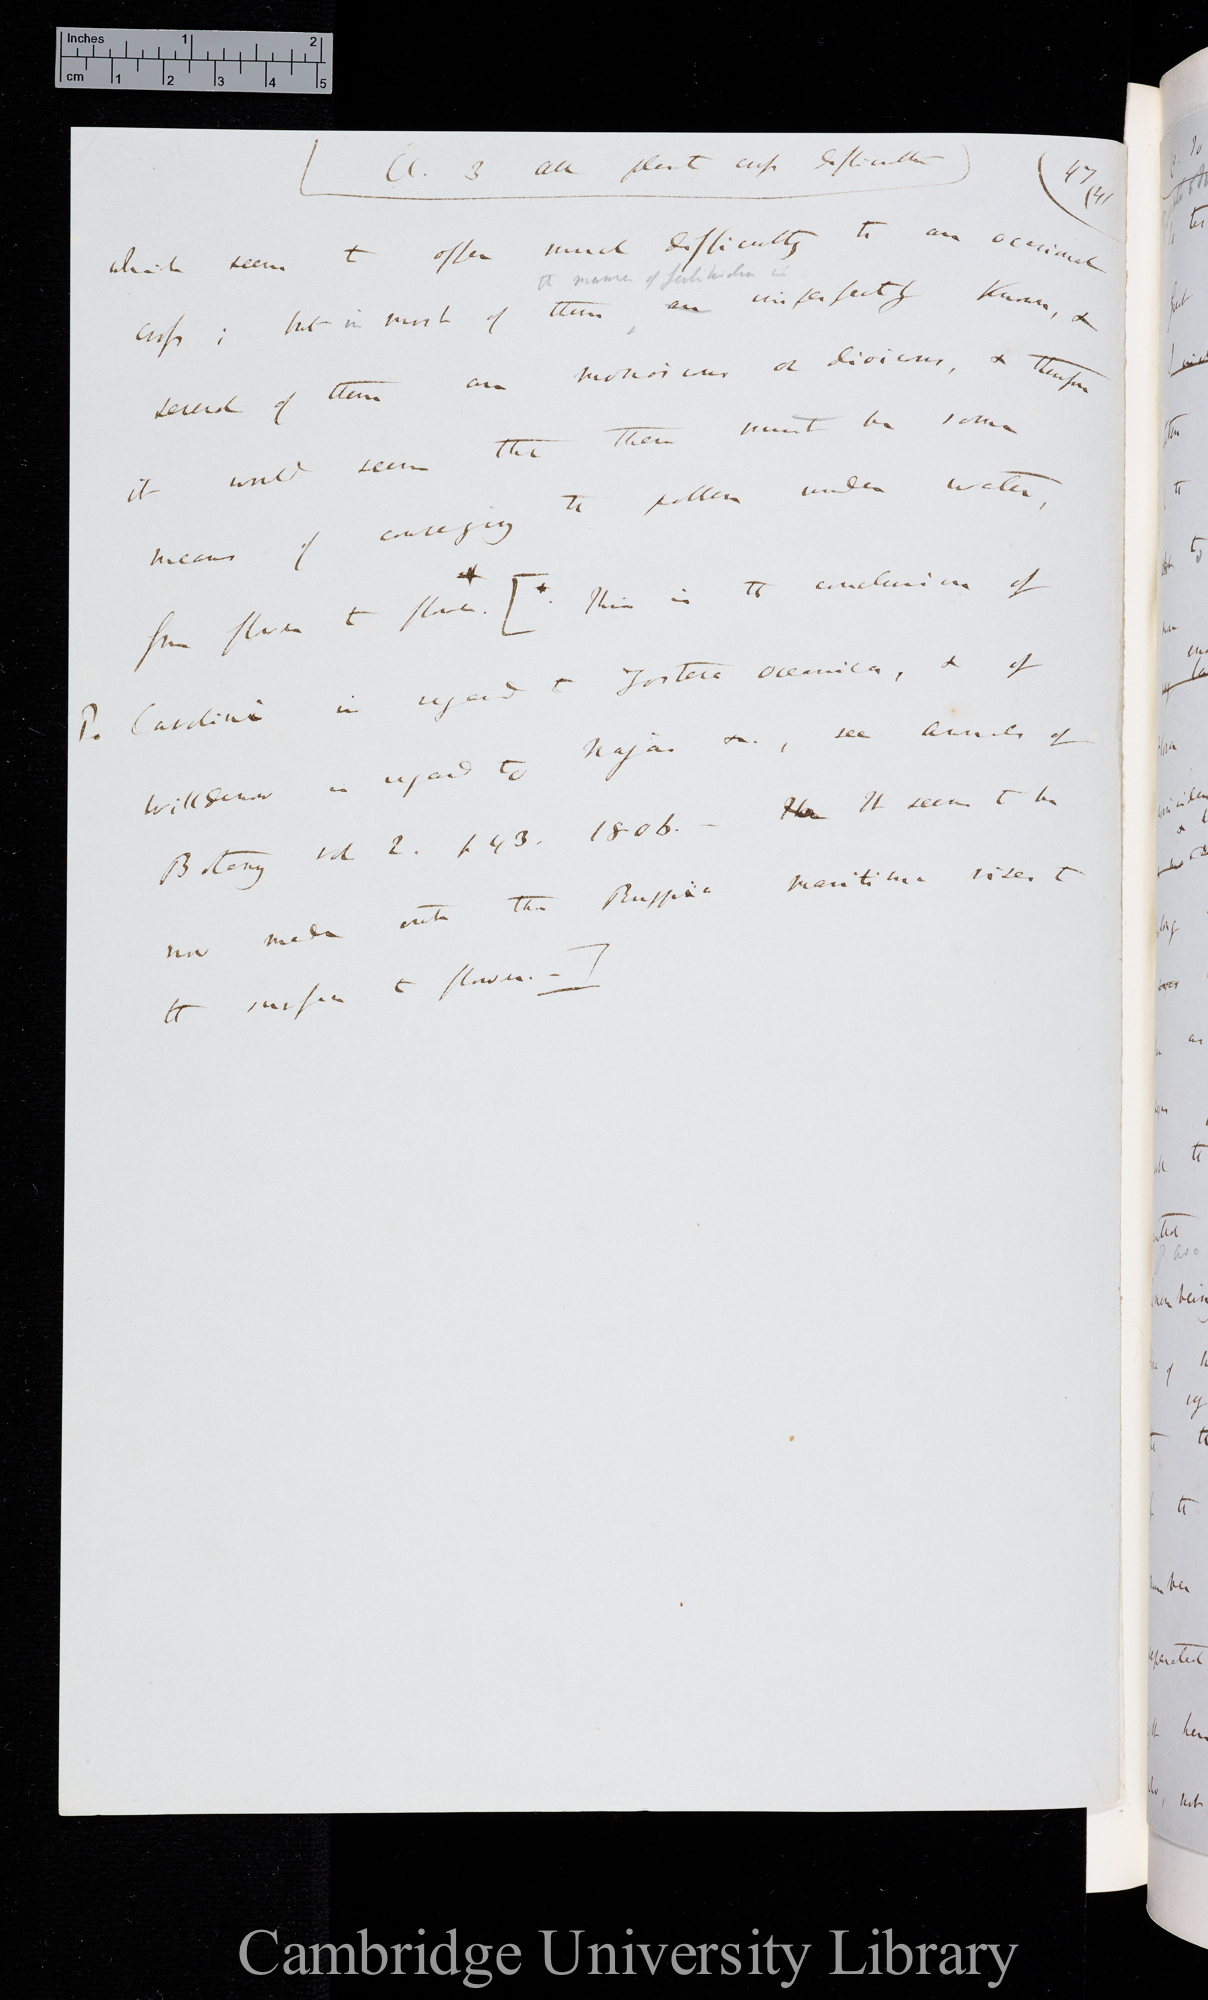 Inches 1 2
cm 1 2 3 4 5
Ch. 3 all plant cross difficulties
47
(41
which seem to offer much difficulty to an occasional
the manner of fertilisation is
cross; but in most of them, are imperfectly known, &
several of them are monoicous or dioicous, & therefore
it would seem that there must be some
means of conveying the pollen under water,
from flower to flower. [+. This is the conclusion of
P. Cavolini in regard to Zostera oceanica, & of
Willdenow in regard to Najas &c., see Annals of
Botany vol 2. p 43. 1806. — It seems to be
now made out that Ruppia maritima rises to
the surface to flower. —]
Cambridge University Library